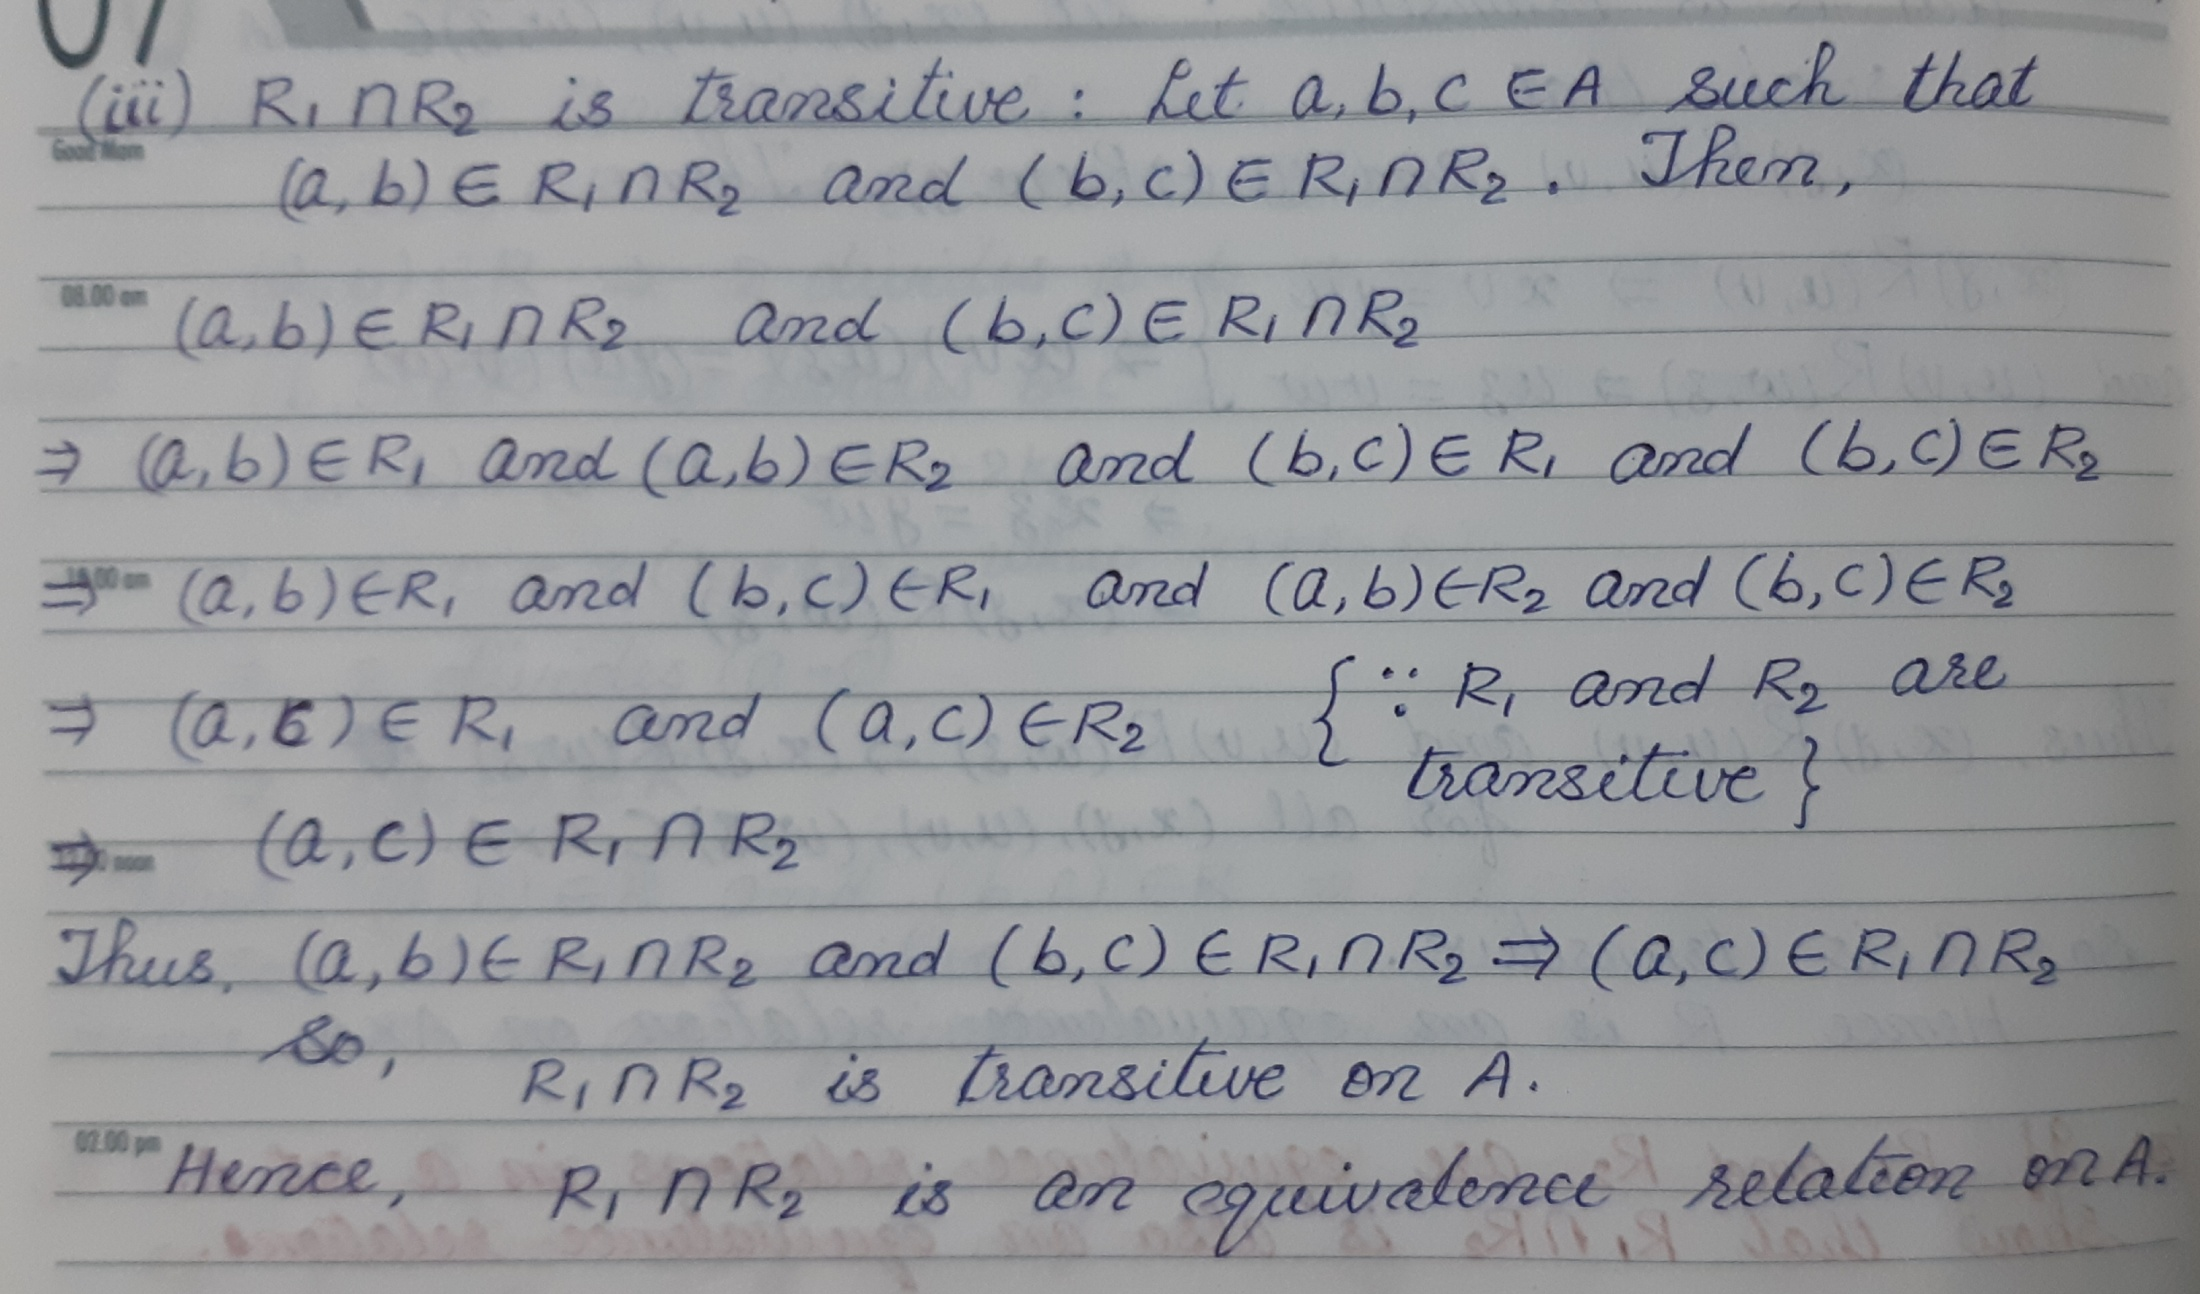 07
(iii) R₁ ∩ R₂ is transitive : Let a, b, c ∈ A such that
Good Morn
(a, b) ∈ R₁ ∩ R₂ and (b, c) ∈ R₁ ∩ R₂ . Then,
08.00 am
(a, b) ∈ R₁ ∩ R₂ and (b, c) ∈ R₁ ∩ R₂
⇒ (a, b) ∈ R₁ and (a, b) ∈ R₂ and (b, c) ∈ R₁ and (b, c) ∈ R₂
⇒ (a, b) ∈ R₁ and (b, c) ∈ R₁ and (a, b) ∈ R₂ and (b, c) ∈ R₂
⇒ (a, c) ∈ R₁ and (a, c) ∈ R₂ { ∵ R₁ and R₂ are
transitive }
⇒ (a, c) ∈ R₁ ∩ R₂
noon
Thus, (a, b) ∈ R₁ ∩ R₂ and (b, c) ∈ R₁ ∩ R₂ ⇒ (a, c) ∈ R₁ ∩ R₂
So,
R₁ ∩ R₂ is transitive on A.
02.00 pm
Hence, R₁ ∩ R₂ is an equivalence relation on A.